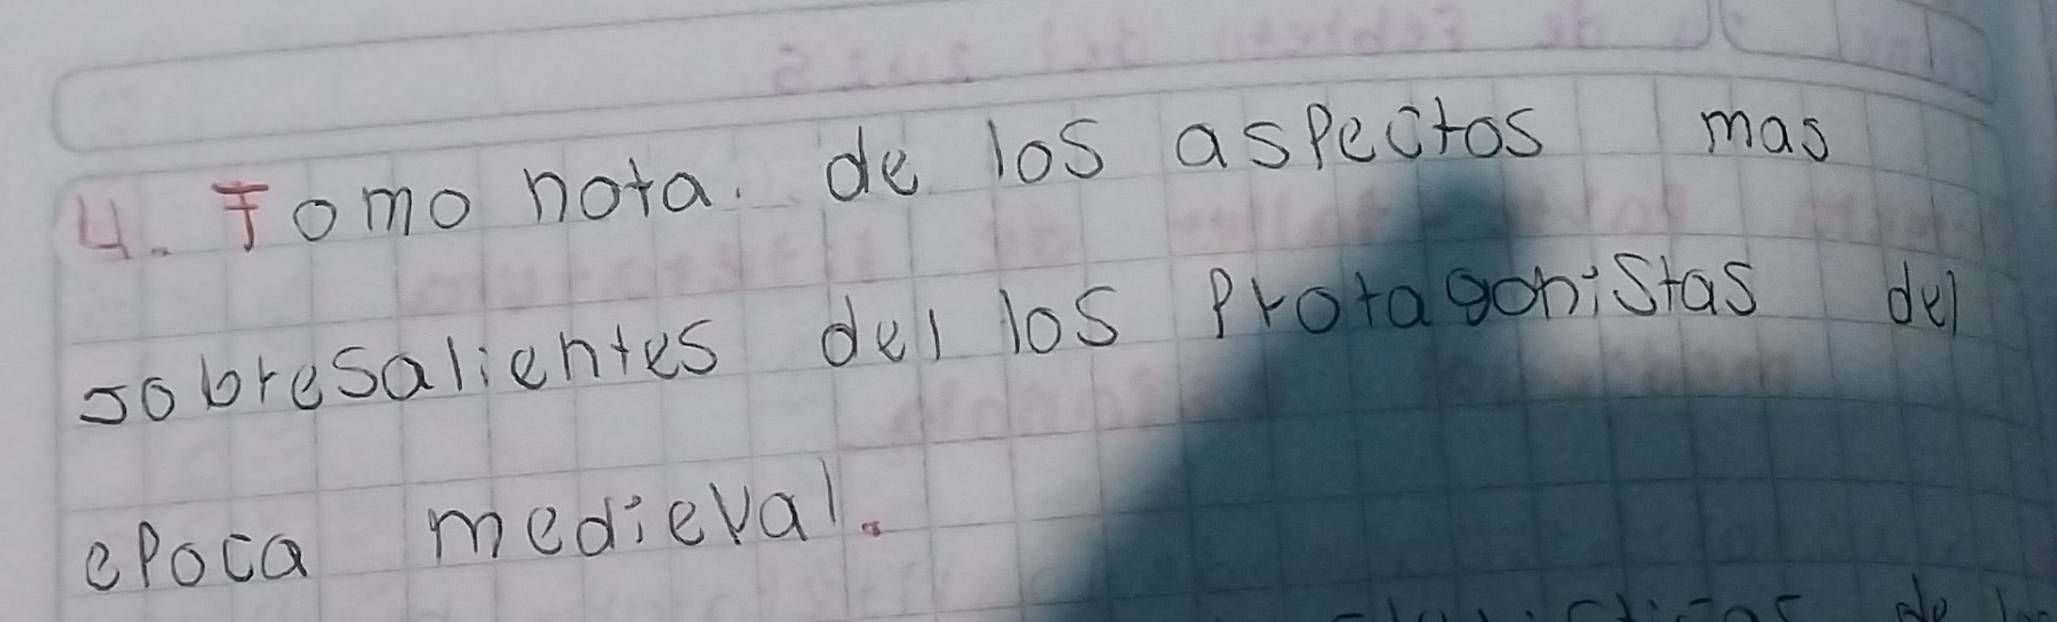 4. Tomo nota. de los aspectos mas
sobresalientes del los Protagonistas del
epoca medieval.